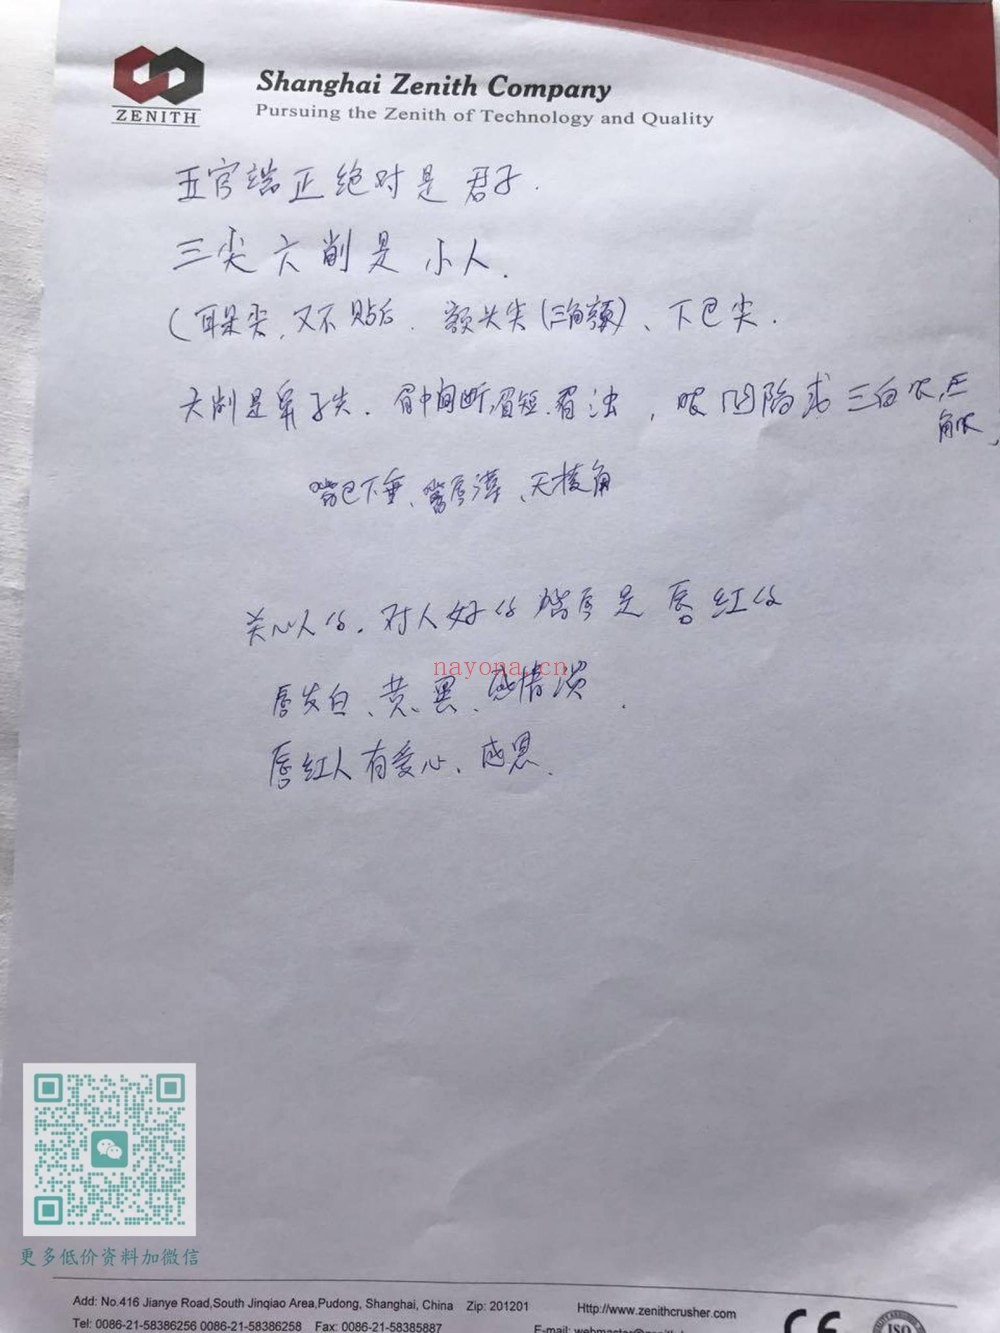 ZENITH
Shanghai Zenith Company
Pursuing the Zenith of Technology and Quality
五官端正绝对是君子.
三尖六削是小人.
(耳朵尖,又不贴后.额头尖(三角额)、下巴尖.
六削是鼻子尖.眉中间断,眉短.眉浊,眼凹陷或三白眼,三
角眼,
嘴巴下垂、嘴唇薄、无棱角
关心人的.对人好的嘴唇是唇红的
nayona.cn
唇发白、黄、黑、感情淡.
唇红人有爱心、感恩.
更多低价资料加微信
Add: No.416 Jianye Road,South Jinqiao Area,Pudong, Shanghai, China Zip: 201201 Http://www.zenithcrusher.com
Tel: 0086-21-58386256 0086-21-58386258 Fax: 0086-21-58385887 E-mail:
CE ISO